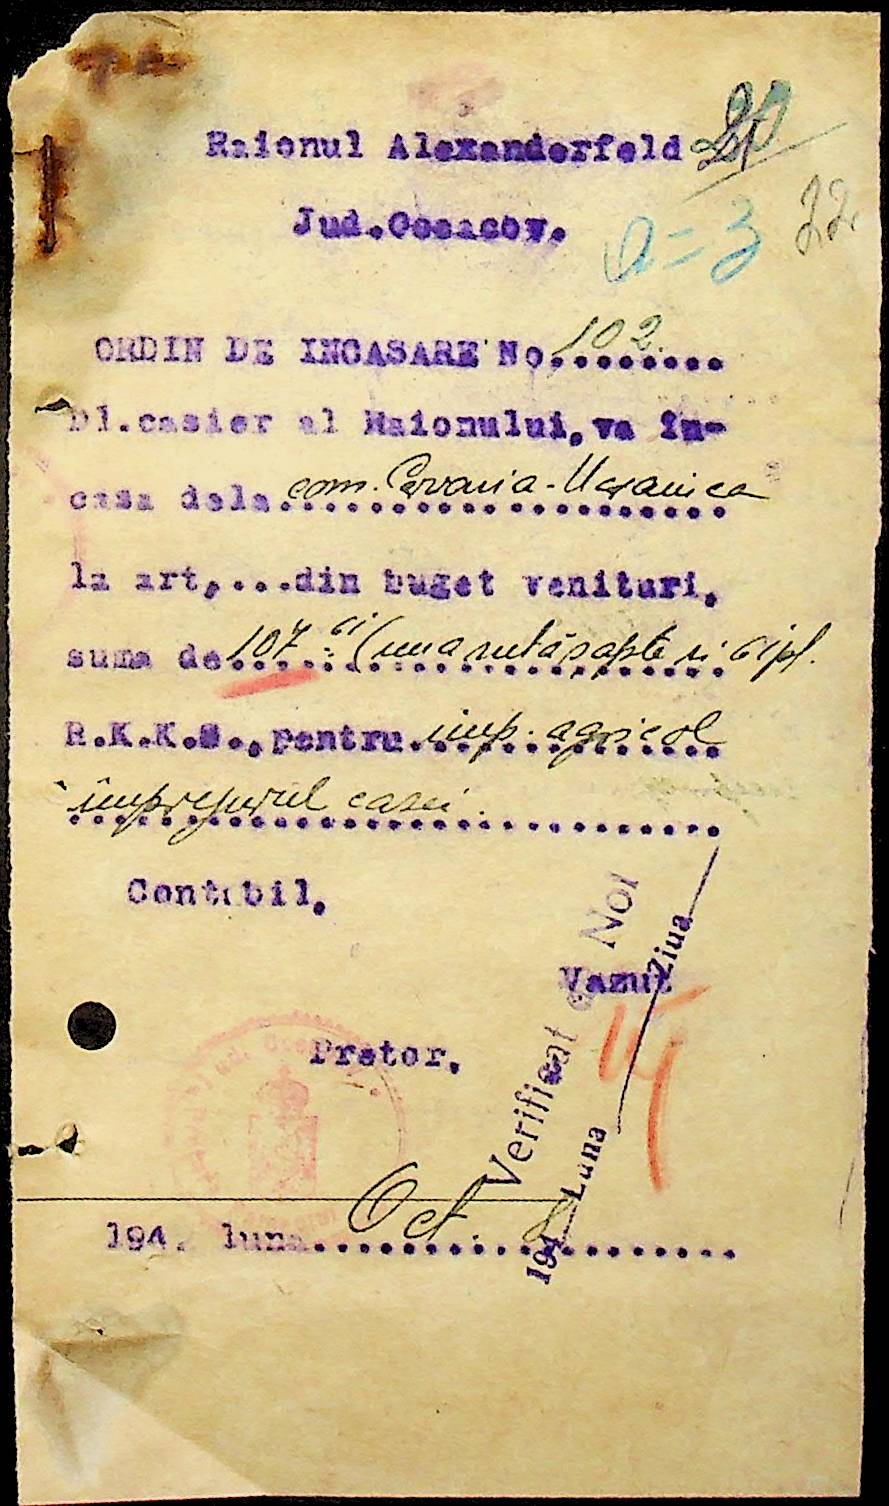 Raionul Alexanderfeld
Jud.Oceacov.
22.
a = 3
ORDIN DE INCASARE No. 102.
Dl.casier al Raionului, va în-
casa dela com. Ucrainca
la art,...din buget venituri,
suma de 107.61 (una sută șapte și 61 pf.
R.K.K.S., pentru imp. agricol
împrejurul casei.
Contabil,
Vazut
Pretor,
Verificat
Noi
Ziua
Luna
194
194. luna Oct.